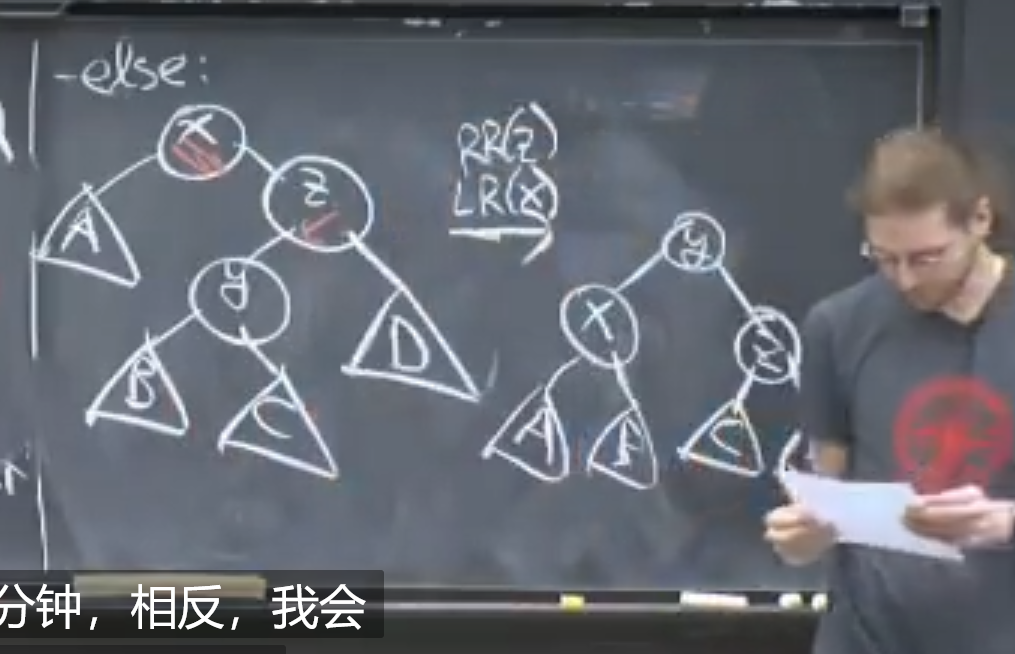 -else:
x
z
A
y
D
B
C
RR(z)
LR(x)
y
x
z
A
B
C
分钟，相反，我会